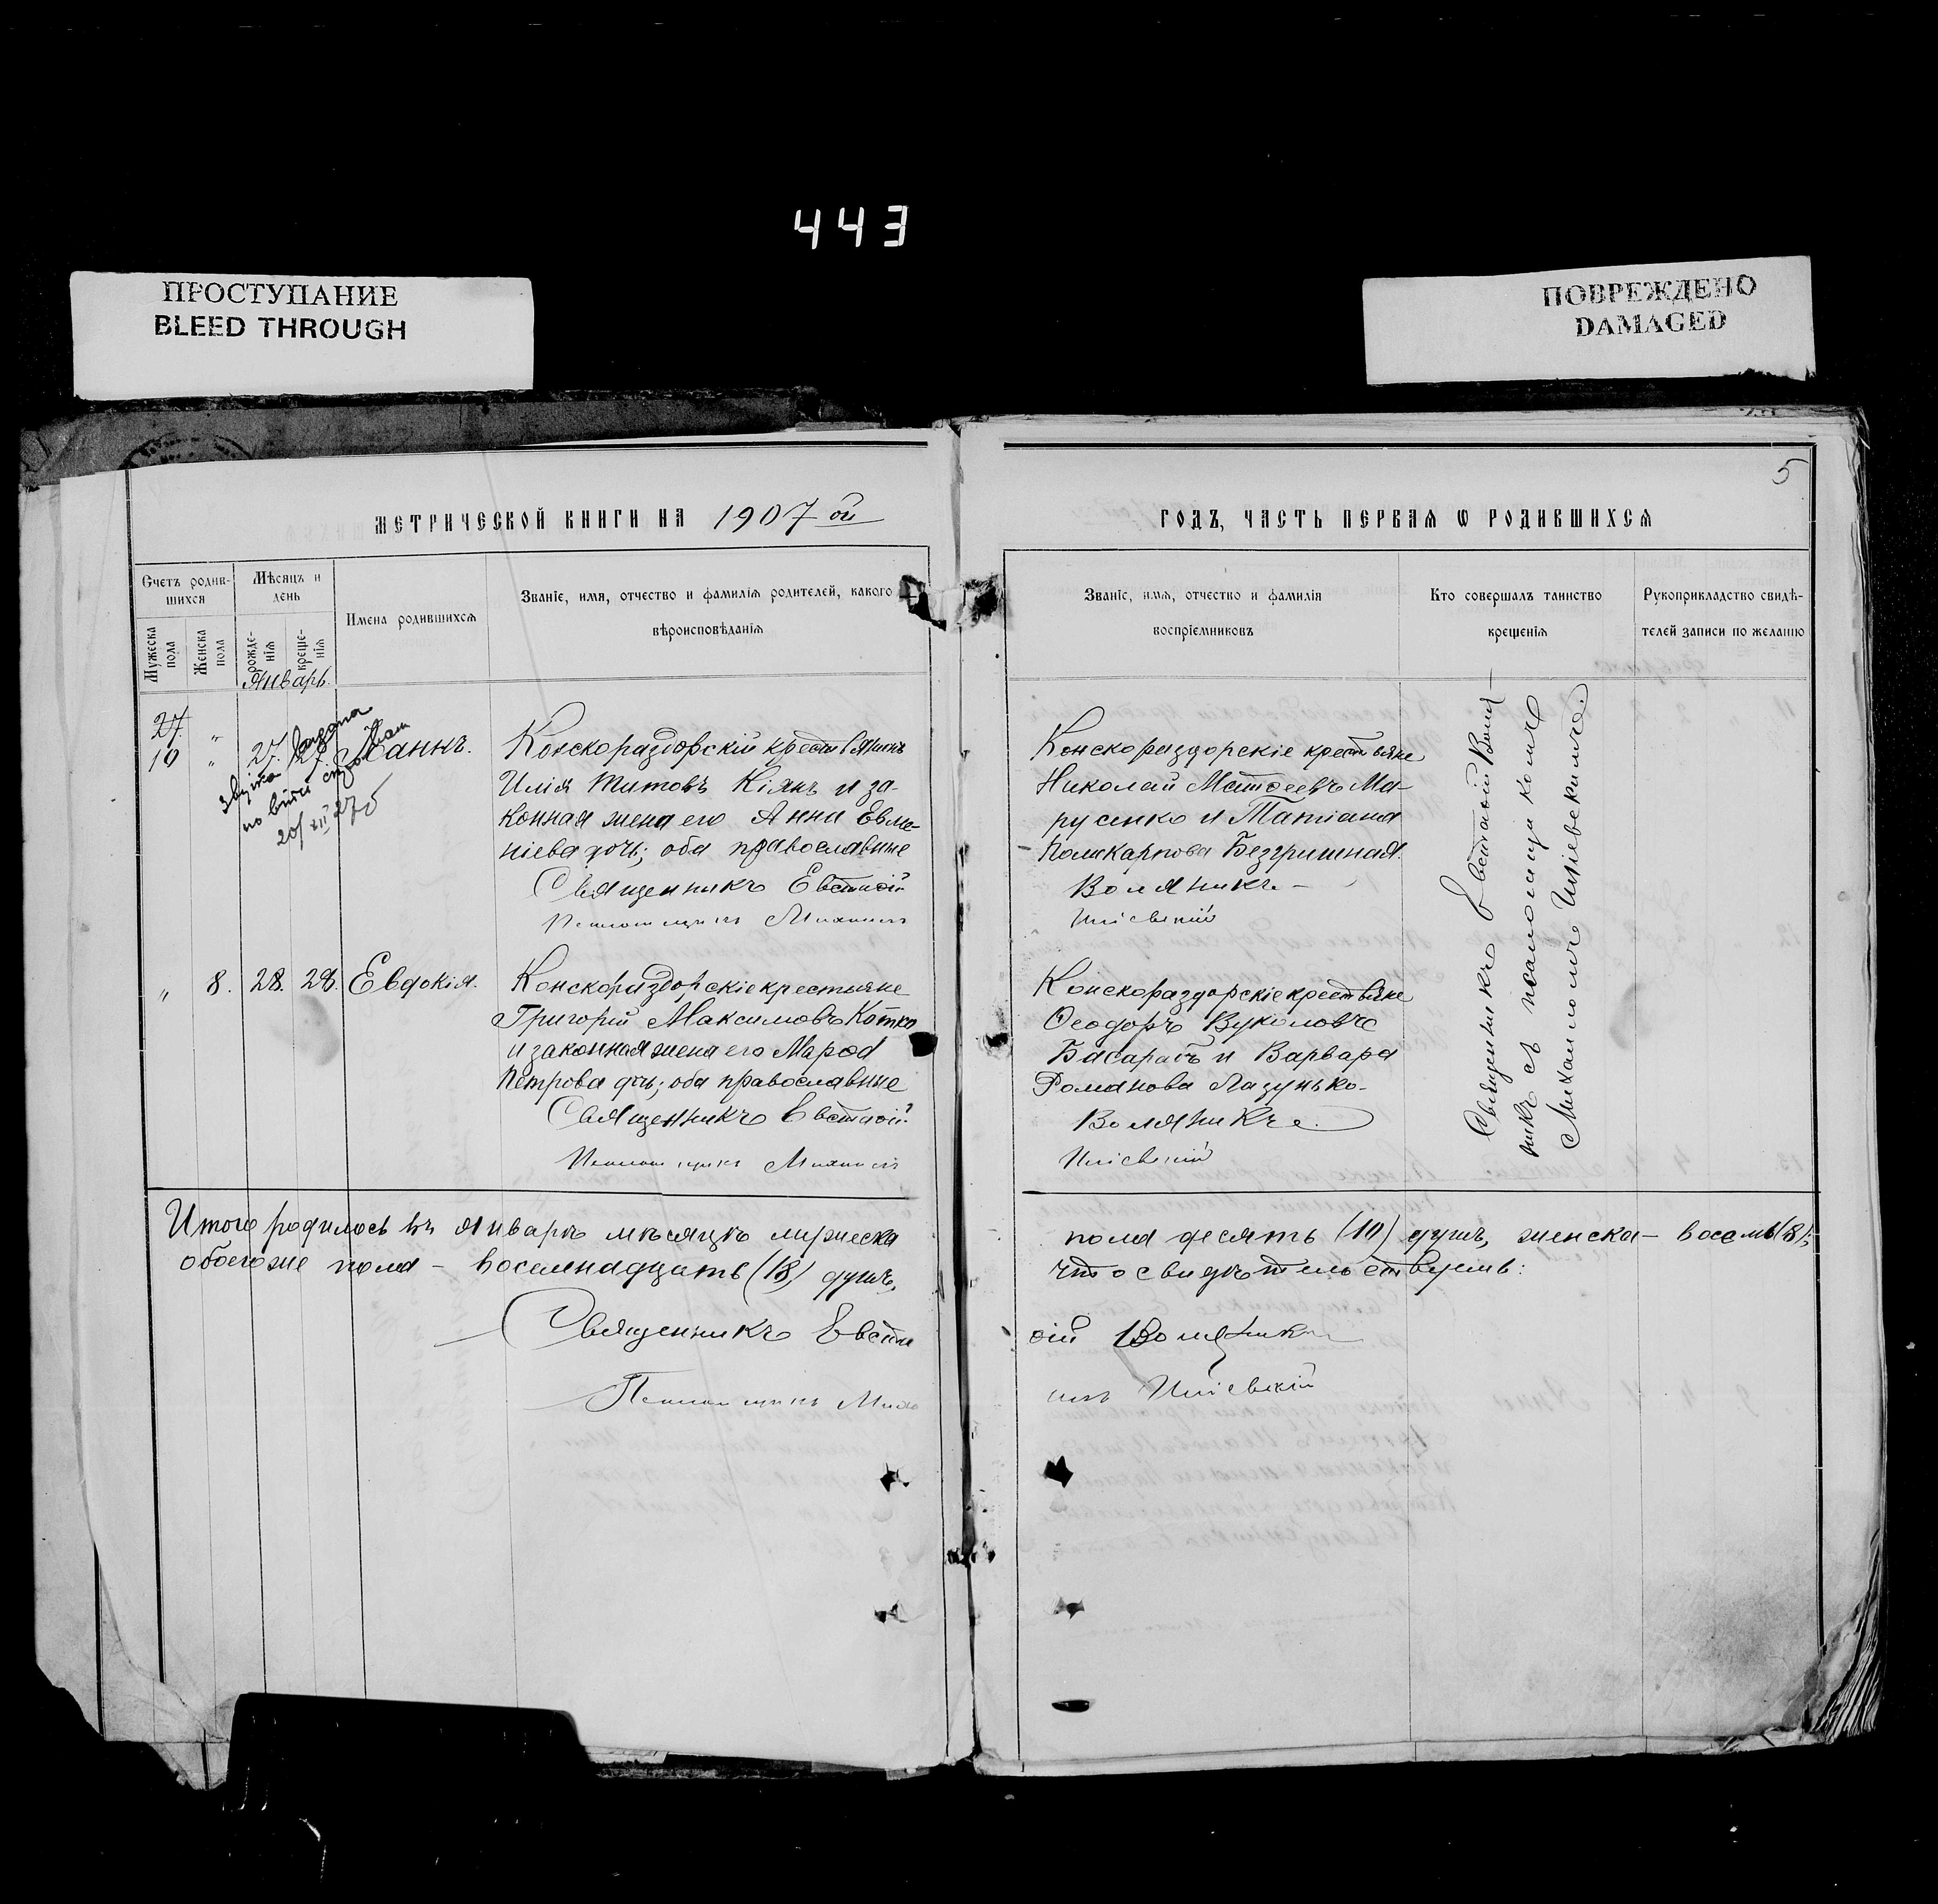 443
ПРОСТУПАНИЕ
BLEED THROUGH
ПОВРЕЖДЕНО
DAMAGED
5
МЕТРИЧЕСКОЙ КНИГИ НА 1907 ой
ГОДЪ, ЧАСТЬ ПЕРВАЯ Ѡ РОДИВШИХСЯ
Счетъ родив-
шихся
Мужеска пола
Женска пола
Мѣсяцъ и
день
рожде-
нія
креще-
нія
Имена родившихся
Званіе, имя, отчество и фамилія родителей, какого
вѣроисповѣданія
Званіе, имя, отчество и фамилія
воспріемниковъ
Кто совершалъ таинство
крещенія
Рукоприкладство свидѣ-
телей записи по желанію
Январь.
27.
10 " 27.
Конскораздорскій крестьянинъ
Илія Титовъ Кіянъ и за-
конная жена его Анна Евме-
ніева дочь; оба православные
Священникъ Евстафій
Псаломщикъ Михаилъ
Конскораздорскіе крестьяне
Николай Матѳеевъ Ма-
русенко и Татіана
Поликарпова Безгришная.
Воляникъ
" 8. 28. 28. Евдокія.
Конскораздорскіе крестьяне
Григорій Максимовъ Котко
и законная жена его Марѳа
Петрова дочь; оба православные
Священникъ Евстафій
Псаломщикъ Михаилъ
Конскораздорскіе крестьяне
Ѳеодоръ Вуколовъ
Басарабъ и Варвара
Романова Лазунько.
Воляникъ
Священникъ Евстафій Воля-
никъ съ псаломщикомъ
Михаиломъ
Итого родилось въ Январѣ мѣсяцѣ мужеска
пола десять (10) душъ, женска - восемь (8);
обоего же пола - восемнадцать (18) душъ,
что свидѣтельствуемъ:
Священникъ Евста
ѳій Воляникъ
Псаломщикъ Миха